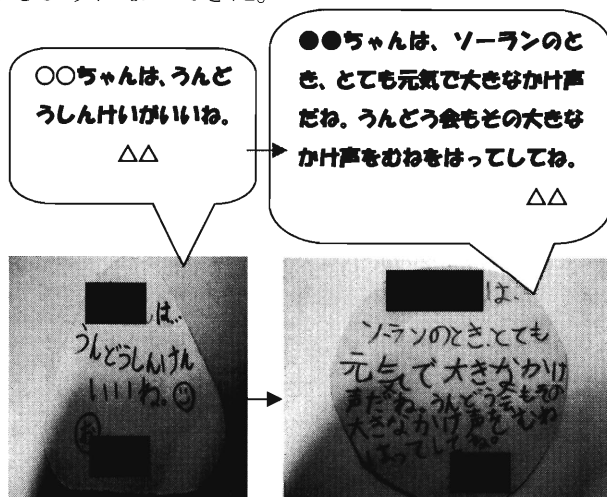 ○○ちゃんは、うんど
うしんけいがいいね。
△△
●●ちゃんは、ソーランのと
き、とても元気で大きなかけ声
だね。うんどう会もその大きな
かけ声をむねをはってしてね。
△△
は、
うんどうしんけん
いいね。
は、
ソーランのとき、とても
元気で大きなかけ
声だね。うんどう会もその
大きなかけ声をむね
はってしてね。